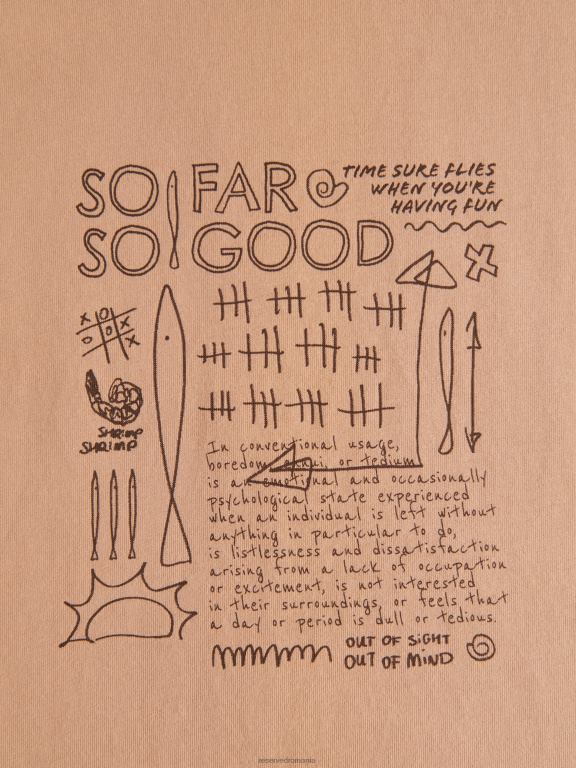 SO FAR
SO GOOD
TIME SURE FLIES
WHEN YOU'RE
HAVING FUN
X O
O X
O X
SHRIMP
SHRIMP
In conventional usage,
boredom, ennui, or tedium
is an emotional and occasionally
psychological state experienced
when an individual is left without
anything in particular to do,
is listlessness and dissatistaction
arising from a lack of occupation
or excitement, is not interested
in their surroundings, or feels that
a day or period is dull or tedious.
OUT OF SIGHT
OUT OF MIND
reservedromania